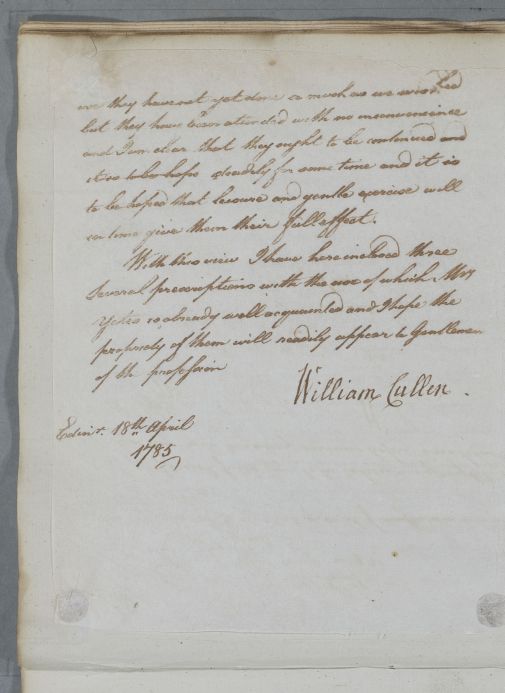 we they have not yet done so much as we wished
but they have been attended with no inconvenience
and I am clear that they ought to be continued and
it is to be hope steadily for some time and it is
to be hoped that leisure and gentle exercise will
in time give them their full effect.
With this view I have here inclosed three
Several prescriptions with the use of which Mrs
Yates is already well acquainted and I hope the
propriety of them will readily appear to Gentlemen
of the profession
William Cullen.
Edinr. 18th April
1785